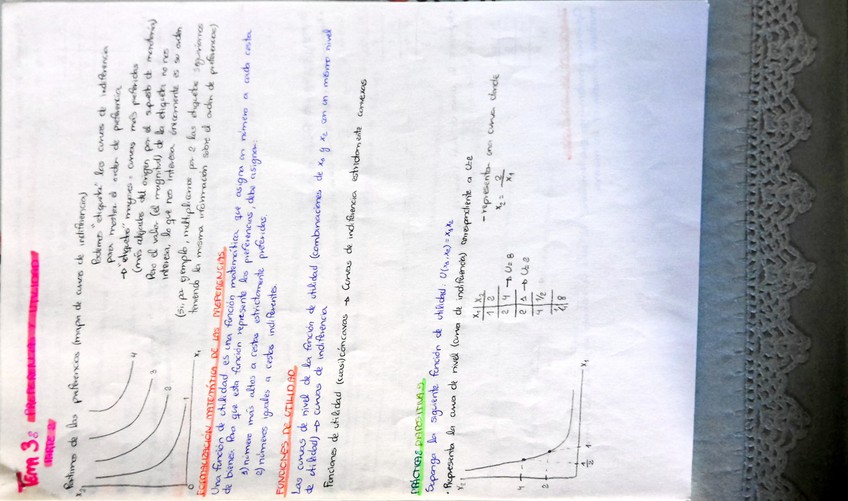 TEMA 3: PREFERENCIAS Y UTILIDAD
PARTE 2
Partimos de las preferencias (mapa de curvas de indiferencia)
x2
4
3
2
1
0
x1
Podemos "etiquetar" las curvas de indiferencia
para mostrar el orden de preferencia
→ "etiquetas" mayores: curvas más preferidas
(más alejadas del origen por el supuesto de monotonía)
Pero el valor (el magnitud) de la etiqueta no nos
interesa, lo que nos interesa únicamente es su orden
(Si, por ejemplo, multiplicamos por 2 las etiquetas seguiríamos
teniendo la misma información sobre el orden de preferencias)
FORMALIZACIÓN MATEMÁTICA DE LAS PREFERENCIAS
Una función de utilidad es una función matemática que asigna un número a cada cesta
de bienes. Para que esta función represente las preferencias, debe asignar:
1) números más altos a cestas estrictamente preferidas.
2) números iguales a cestas indiferentes
FUNCIONES DE UTILIDAD
Las curvas de nivel de la función de utilidad (combinaciones de x1 y x2 con un mismo nivel
de utilidad) → curvas de indiferencia
Funciones de utilidad (cuasi)cóncavas → Curvas de indiferencia estrictamente convexas
PRÁCTICA DIAPOSITIVA
Suponga la siguiente función de utilidad: U(x1,x2)=x1x2
· Representa la curva de nivel (curva de indiferencia) correspondiente a U=2
x2
4
2
1/2
1
x1
x1 | x2
1 | 2
2 | 4 → U=8
2 | 1 → U=2
4 | 1/2
1/4 | 8
- representar una curva donde
x2 = 2/x1